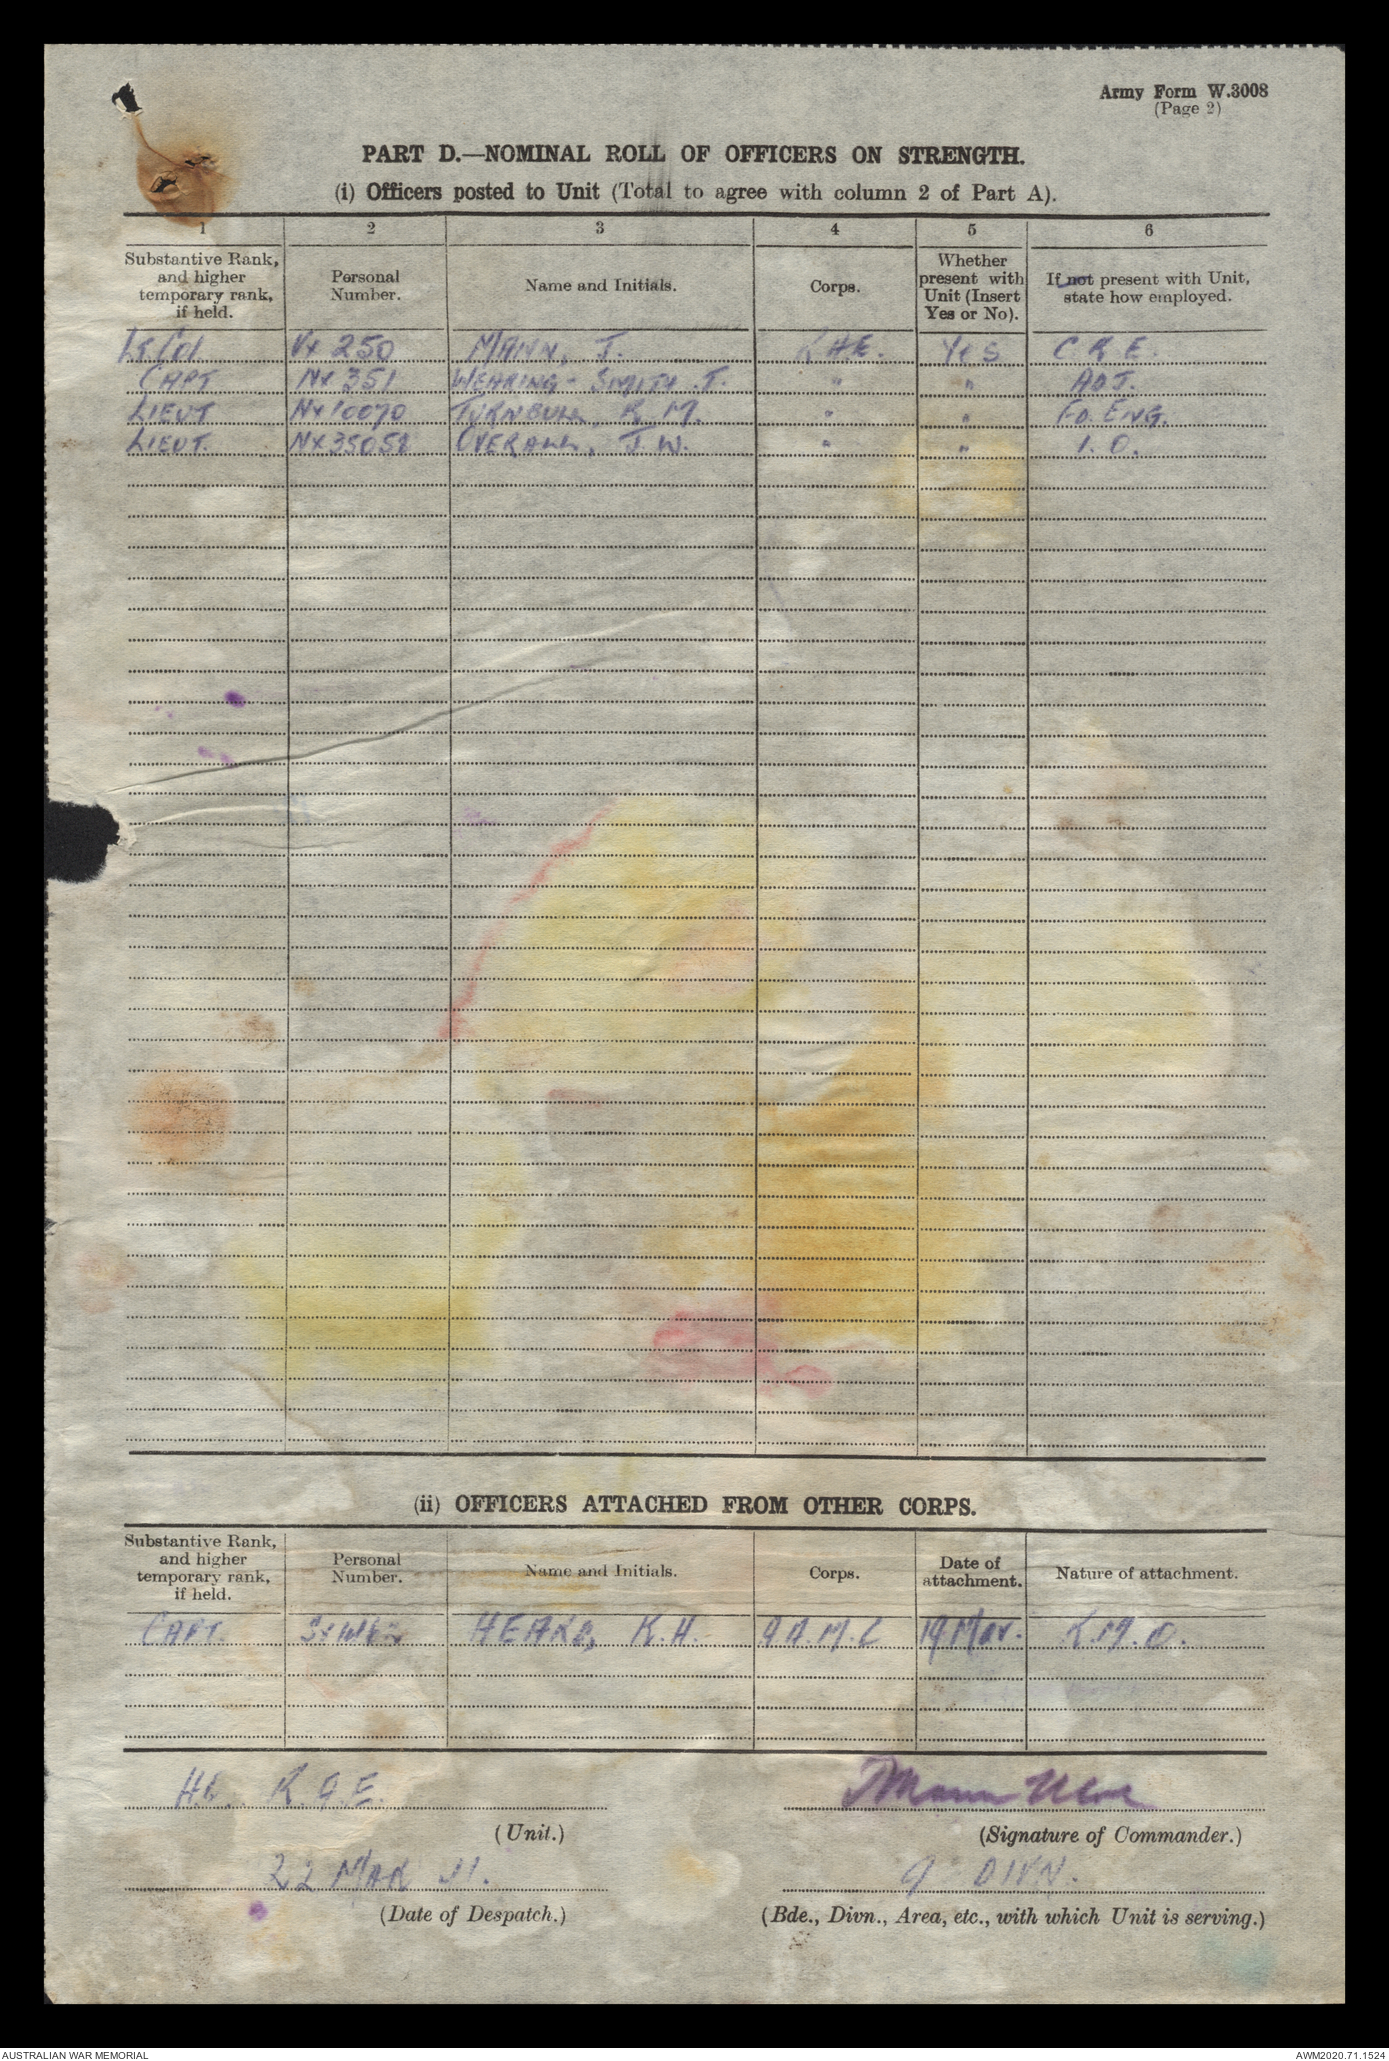 Army Form W.3008
(Page 2)
PART D.—NOMINAL ROLL OF OFFICERS ON STRENGTH.
(i) Officers posted to Unit (Total to agree with column 2 of Part A).
1 2 3 4 5 6
Substantive Rank, and higher temporary rank, if held. Personal Number. Name and Initials. Corps. Whether present with Unit (Insert Yes or No). If not present with Unit, state how employed.
Lt/Col Vx 250 MANN, J. R A E. Yes C R E.
CAPT Nx 351 WEARING-SMITH .T. " " ADJ.
LIEUT Nx 10070 TURNBULL, R M. " " FD. ENG.
LIEUT. NX35058 OVERALL, J. W. " " I. O.
(ii) OFFICERS ATTACHED FROM OTHER CORPS.
Substantive Rank, and higher temporary rank, if held. Personal Number. Name and Initials. Corps. Date of attachment. Nature of attachment.
CAPT. K.H. A A.M.C 19 Mar. R.M.O.
HQ. R.A.E.
(Unit.)
(Signature of Commander.)
22 MAR 41.
(Date of Despatch.)
9 DIVN.
(Bde., Divn., Area, etc., with which Unit is serving.)
AUSTRALIAN WAR MEMORIAL
AWM2020.71.1524